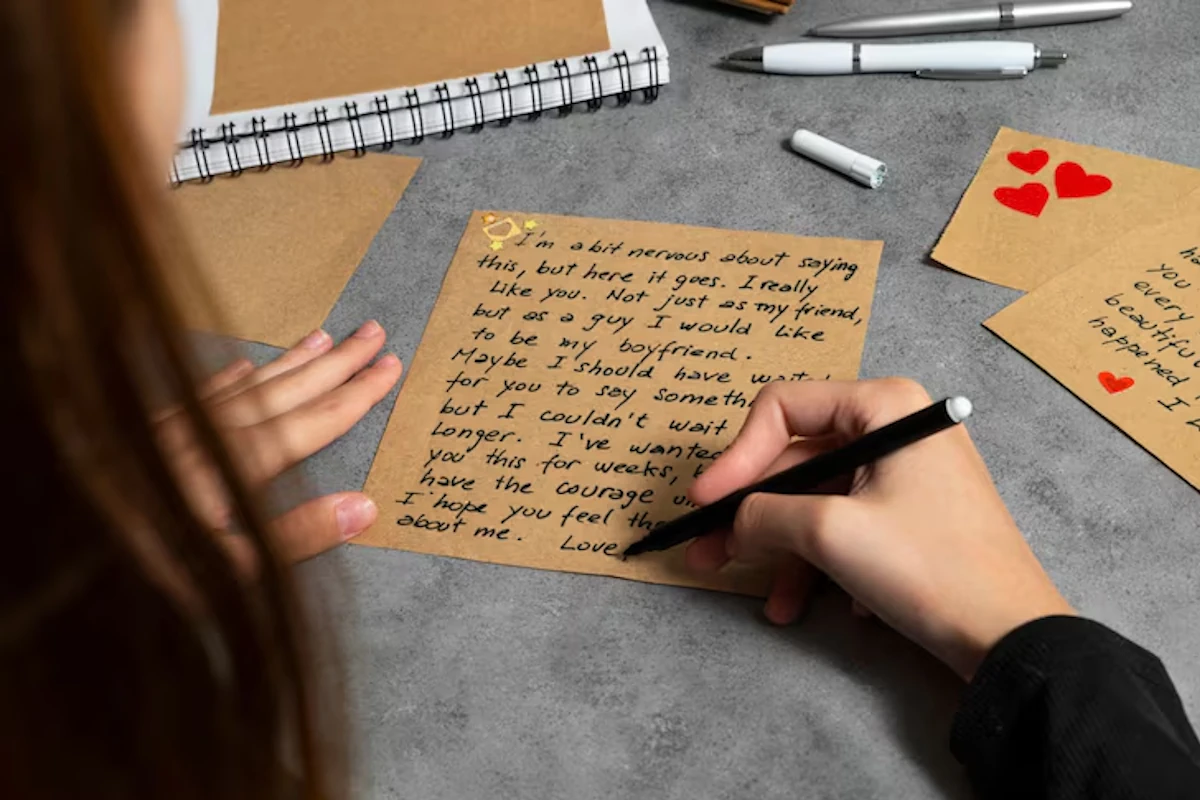 I'm a bit nervous about saying
this, but here it goes. I really
Like you. Not just as my friend,
but as a guy I would like
to be my boyfriend.
Maybe I should have
for you to say
but I couldn't wait
Longer. I've
you this for weeks,
have the courage
I hope you feel
about me. Love
you
every
happened I